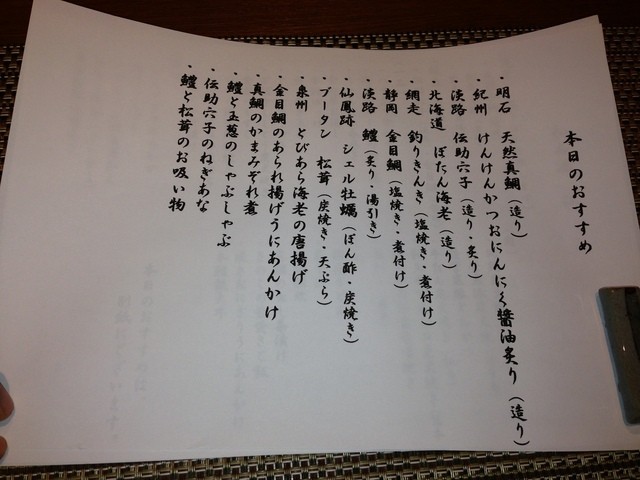 本日のおすすめ
・明石 天然真鯛(造り)
・紀州 けんけんかつおにんにく醤油炙り(造り)
・淡路 伝助穴子(造り・炙り)
・北海道 ぼたん海老(造り)
・網走 釣りきんき(塩焼き・煮付け)
・静岡 金目鯛(塩焼き・煮付け)
・淡路 鱧(炙り・湯引き)
・仙鳳跡 シェル牡蠣(ぽん酢・炭焼き)
・ブータン 松茸(炭焼き・天ぷら)
・泉州 とびあら海老の唐揚げ
・金目鯛のあられ揚げうにあんかけ
・真鯛のかまみぞれ煮
・鱧と玉葱のしゃぶしゃぶ
・伝助穴子のねぎあな
・鱧と松茸のお吸い物